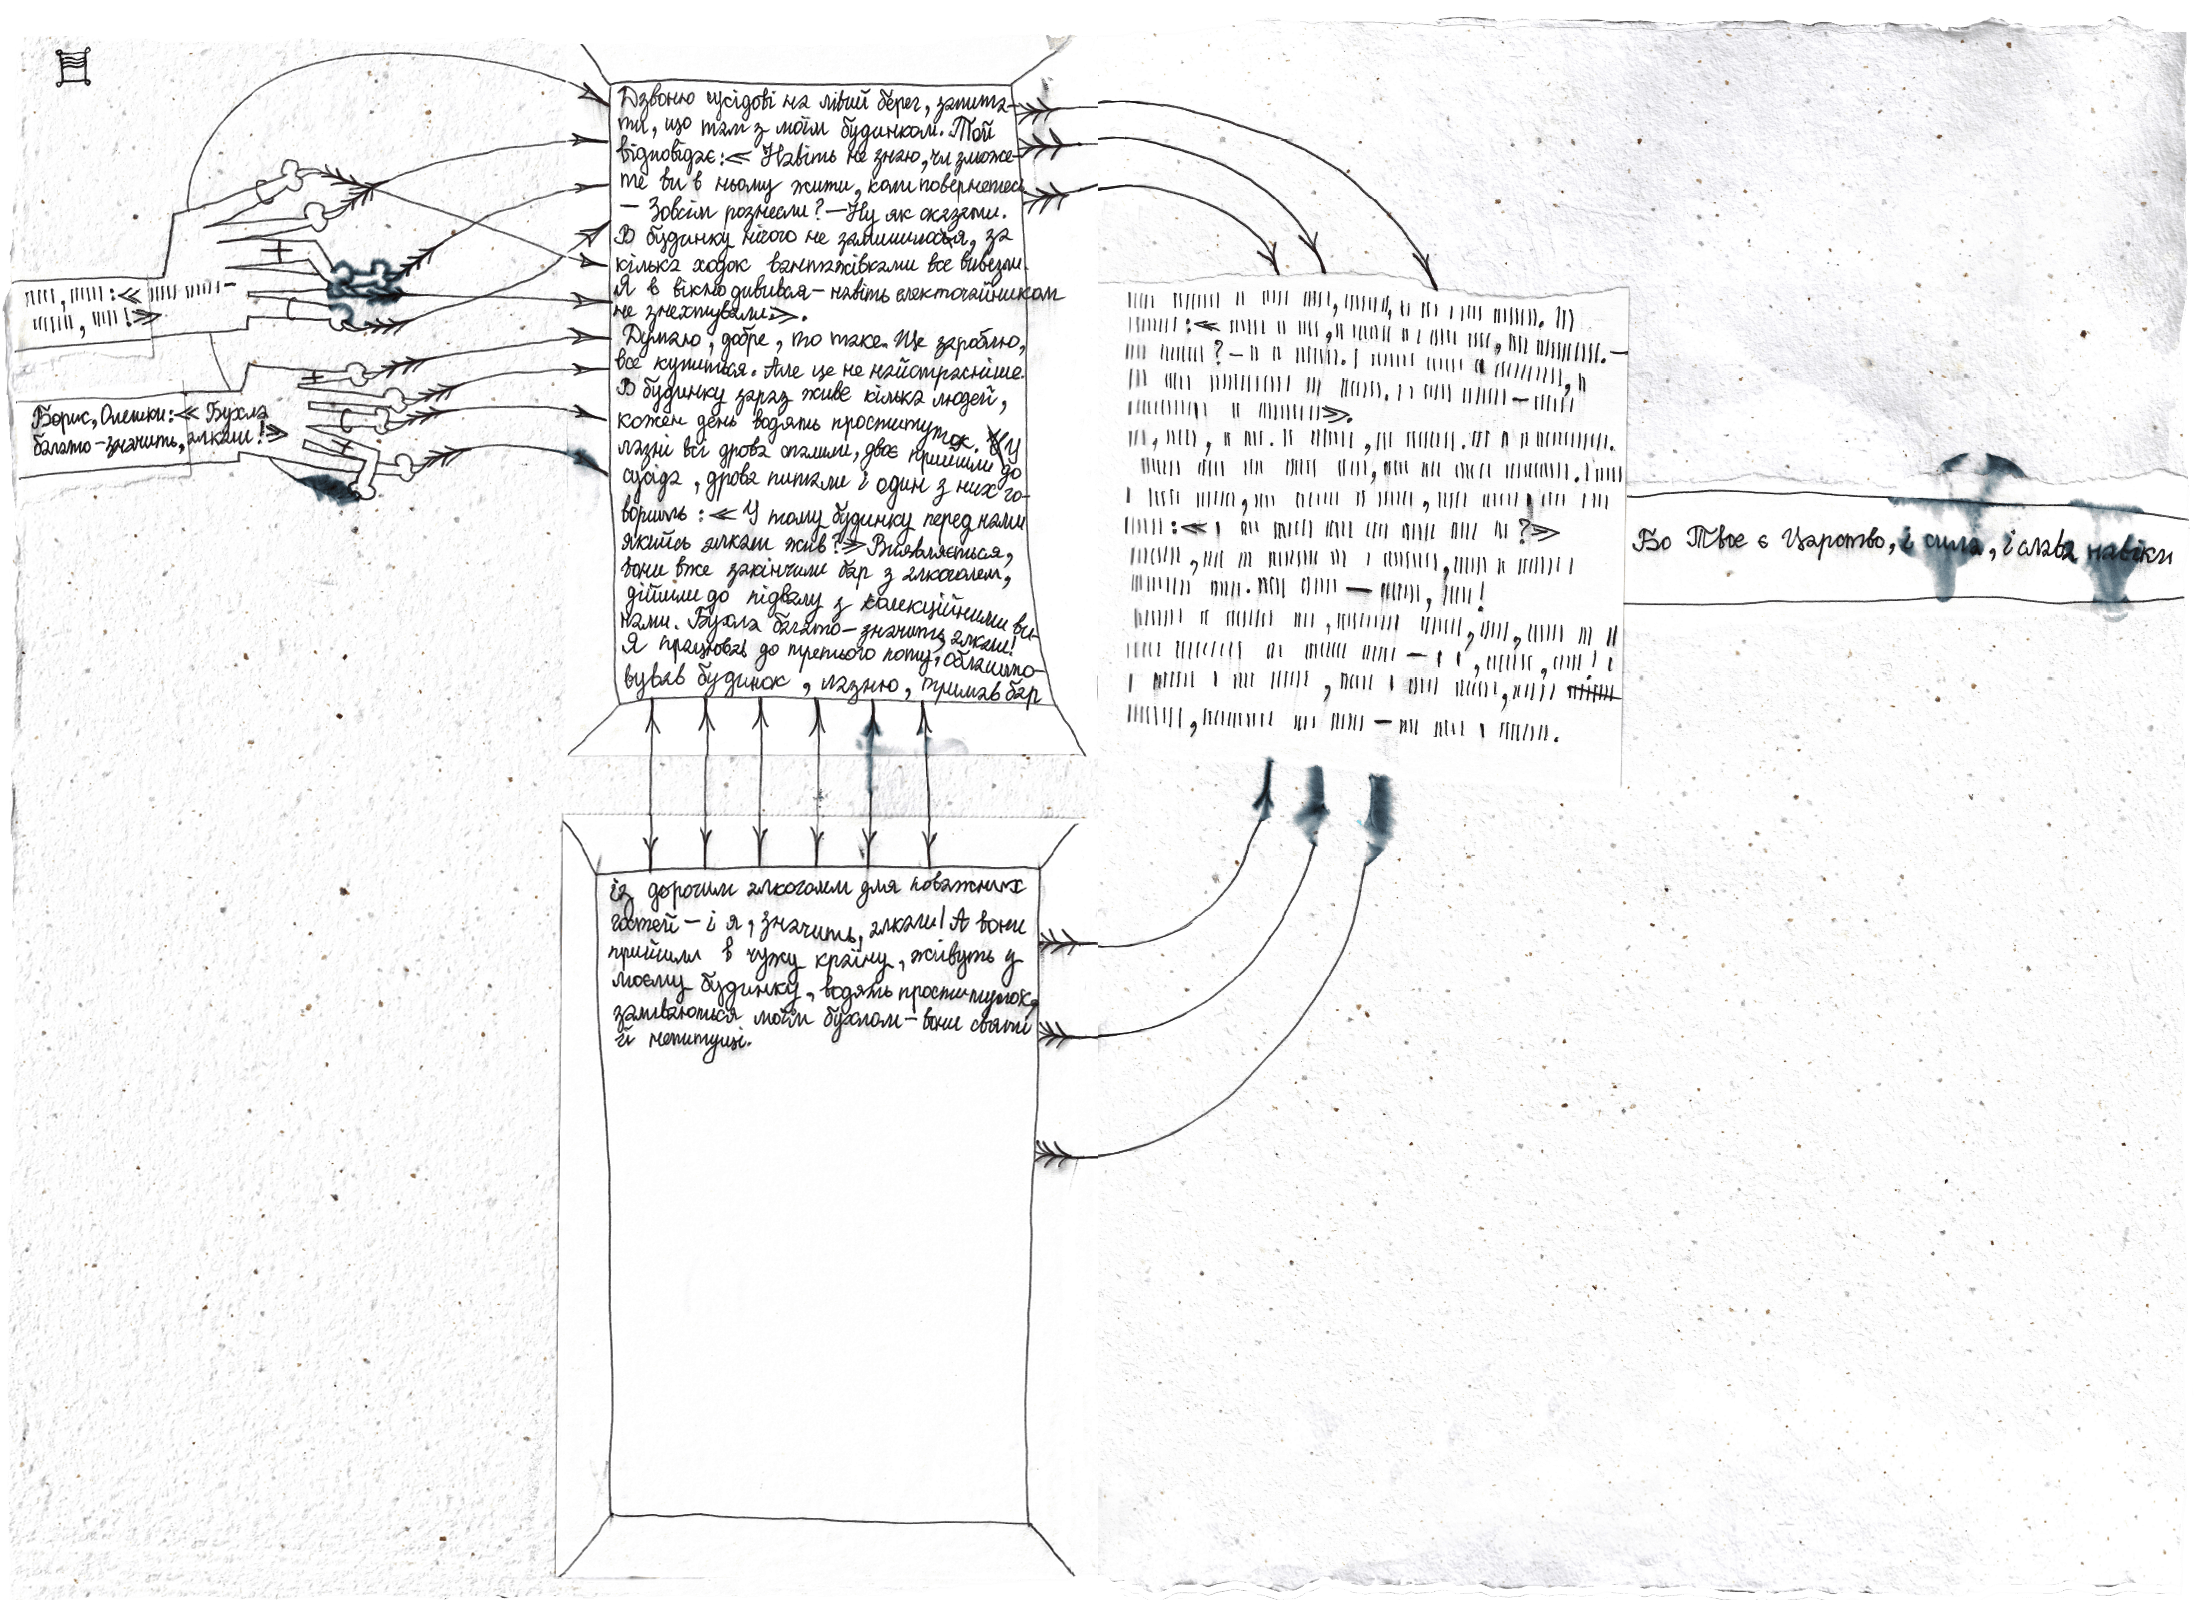 Борис, Олешки:≪ Бухла
багато-значить, алкаш!≫
Дзвоню сусідові на лівий берег, запита-
ти, що там з моїм будинком. Той
відповідає:≪ Навіть не знаю, чи зможе-
те ви в ньому жити, коли повернетесь
— Зовсім рознесли?—Ну як сказати.
В будинку нічого не залишилося, за
кілька ходок вантажівками все вивезли.
Я в вікно дивився—навіть електочайником
не знехтували≫.
Думаю, добре, то таке. Ще зароблю,
все купиться. Але це не найстрасніше.
В будинку зараз живе кілька людей,
кожен день водять проституток. У
лазні всі дрова спалили, двоє прийшли до
сусіда, дрова питали і один з них го-
ворить:≪ У тому будинку перед нами
якийсь алкаш жив?≫ Виявляється,
вони вже закінчили бар з алкоголем,
дійшли до підвалу з колекційними ви-
нами. Бухла багато—значить, алкаш!
Я працював до третього поту, облашто-
вував будинок, лазню, тримав бар
із дорогим алкоголем для поважних
гостей—і я, значить, алкаш! А вони
прийшли в чужу країну, живуть у
моєму будинку, водять проституток,
заливаються моїм бухлом—вони святі
й непитущі.
Бо Твоє є Царство, і сила, і слава навіки